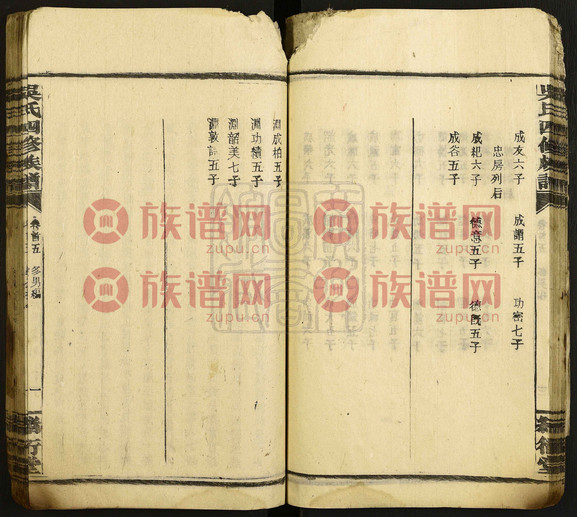 成友六子　成謂五子　功密七子
忠房列后
成耙六子　懷意五子　德既五子
成谷五子
淵成柏五子
淵功積五子
淵韶美七子
淵敦語五子
吳氏四修族譜
卷首五
多男
族谱网
zupu.cn
族谱网
zupu.cn
族谱网
zupu.cn
族谱网
zupu.cn